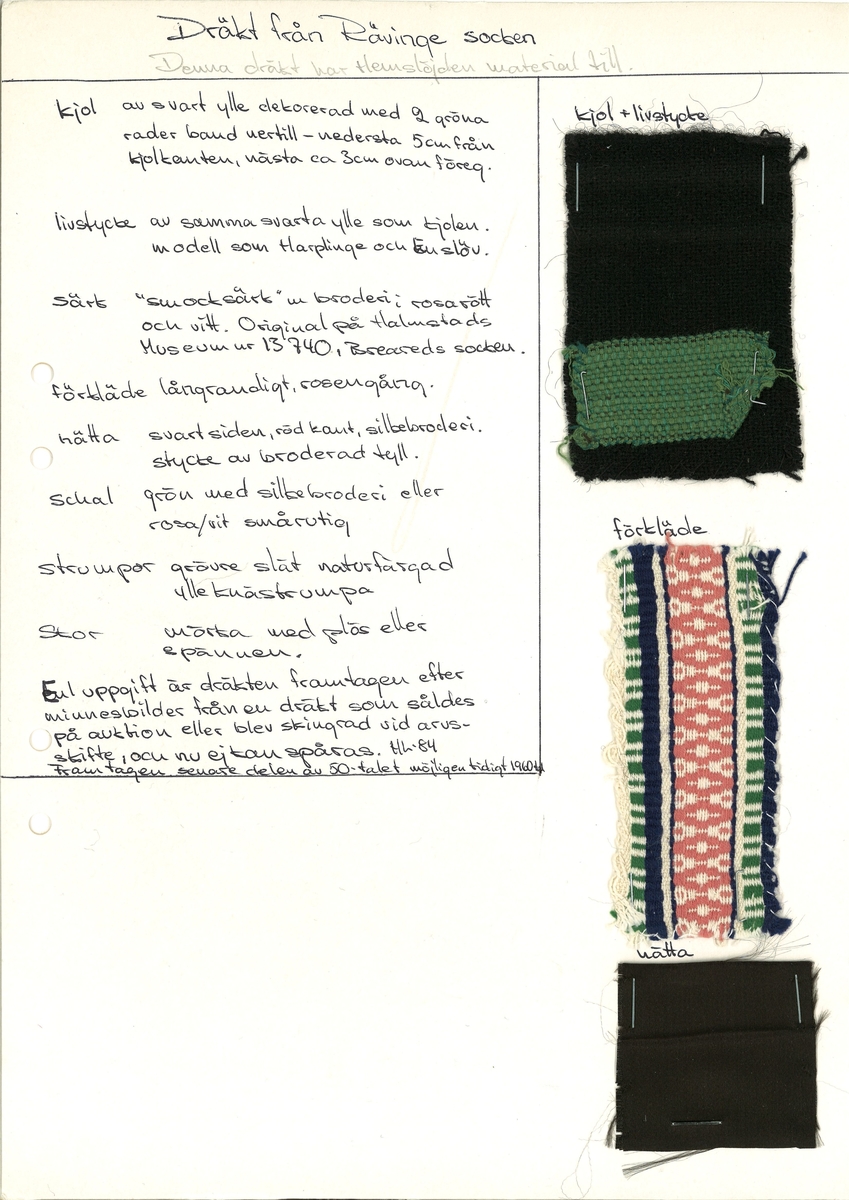 Dräkt från Rävinge socken
Denna dräkt har Hemslöjden material till.
kjol av svart ylle dekorerad med 2 gröna
rader band nertill - nedersta 5cm från
kjolkanten, nästa ca 3cm ovan föreg.
livstycke av samma svarta ylle som kjolen.
modell som Harplinge och Enslöv.
särk "smocksärk" m broderi i rosarött
och vitt. Original på Halmstads
Museum nr 13'740, Breareds socken.
förkläde långrandigt, rosengång.
hätta svart siden, röd kant, silkebroderi.
stycke av broderad tyll.
schal grön med silkebroderi eller
rosa/vit smårutig
strumpor grövre slät naturfärgad
ylleknästrumpa
skor mörka med plös eller
spännen.
Enl uppgift är dräkten framtagen efter
minnesbilder från en dräkt som såldes
på auktion eller blev skingrad vid arvs-
skifte, och nu ej kan spåras. HH-84
Framtagen senare delen av 50-talet möjligen tidigt 1960tal
kjol + livstycke
förkläde
hätta